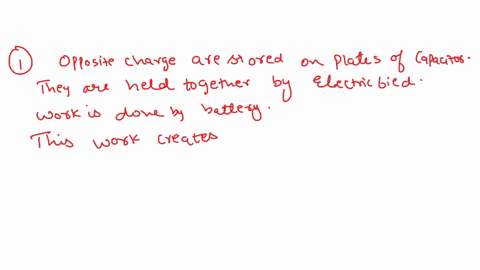 ① Opposite charge are stored on plates of capacitor.
They are held together by Electric bied.
work is done by battery.
This work creates